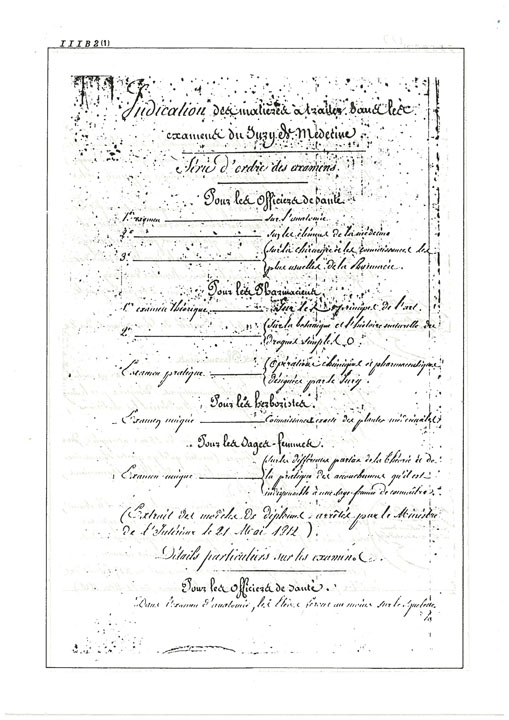 IIIB2(1)
Indication des matières a traiter dans les
examens du Jury de Médecine.
Série d'ordre des examens.
Pour les Officiers de santé
1er examen sur l'anatomie.
2e sur les élémens de la médecine
3e sur la chirurgie et les connaissances les
plus usuelles de la Pharmacie.
Pour les Pharmaciens
1er examen théorique sur les principes de l'art.
2e sur la botanique et l'histoire naturelle des
drogues simples
Examen pratique Opérations chimiques et pharmaceutiques
désignées par le Jury.
Pour les herboristes.
Examen unique Connaissance exacte des plantes médicinales
Pour les sages-femmes.
sur les différentes parties de la théorie et de
Examen unique la pratique des accouchemens qu'il est
indispensable à une sage-femme de connaître.
(Extrait des modèles de diplome arrêtés par le Ministre
de l'Intérieur le 21 Mai 1812).
Détails particuliers sur les examens.
Pour les Officiers de santé.
Dans l'examen d'anatomie, les élèves feront au moins sur le squelette
la